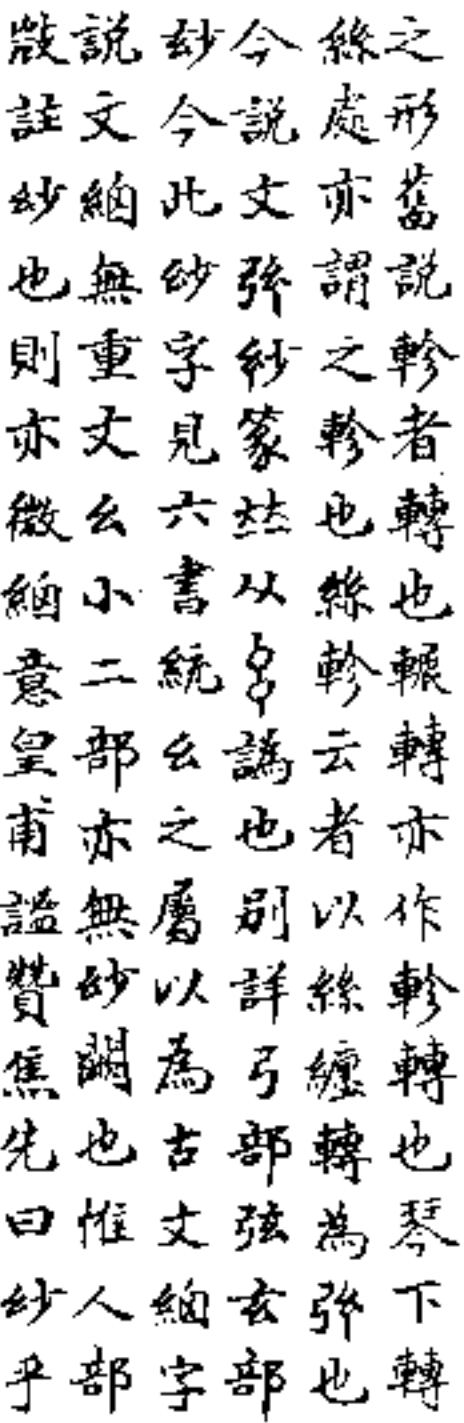 之形舊說軫者轉也輾轉亦作軫轉也琴下轉
絲處亦謂之軫也絲軫云者以絲纏轉為弦也
今說文弦紗篆𠀤从𢆯譌也別詳弓部弦玄部
玅今此玅字見六書統幺之屬以為古文緬字
說文緬無重文幺小二部亦無玅闕也惟人部
敳註玅也則亦微緬意皇甫謐贊焦先曰玅乎